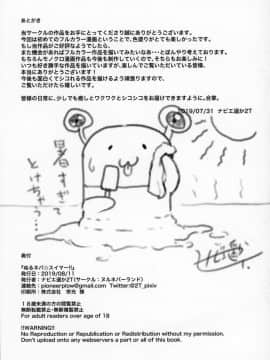 あとがき
当サークルの作品をお手にとってくださり誠にありがとうございます。
今回は初めてのフルカラー漫画ということで、色塗りがとても楽しかったです。
もし当作品がご好評なようでしたら、
また機会があればフルカラー作品を描いてみたいなあ…とぼんやり考えております。
もちろんモノクロ漫画作品も今後も制作していくので、そちらもお楽しみに！
いつも好き勝手な作品を描いていますが、楽しんでご覧いただいている皆様、
本当にありがとうございます！
今後も面白くてシコれる作品を届けるよう頑張りますので、
ご覧いただけたら嬉しいです。
皆様の日常に、少しでも癒しとワクワクとシコシコをお届けできますように。合掌。
2019/07/31 ナビエ遥か2T
暑すぎて
とけちゃう…
ナビエ遥か
2T
奥付
発行日：2019/08/11
発行者：ナビエ遥か2T(サークル：ヌルネバーランド)
連絡先：pioneerplow@gmail.com Twitter:@2T_pixiv
印刷所：株式会社 栄光 様
18歳未満の方の閲覧禁止
無断転載禁止・無断複製禁止
For adult readers over age of 18
!!WARNING!!
No Reproduction or Republication or Redistribution without my permission.
Don't upload onto any webservers a part or all of this book.